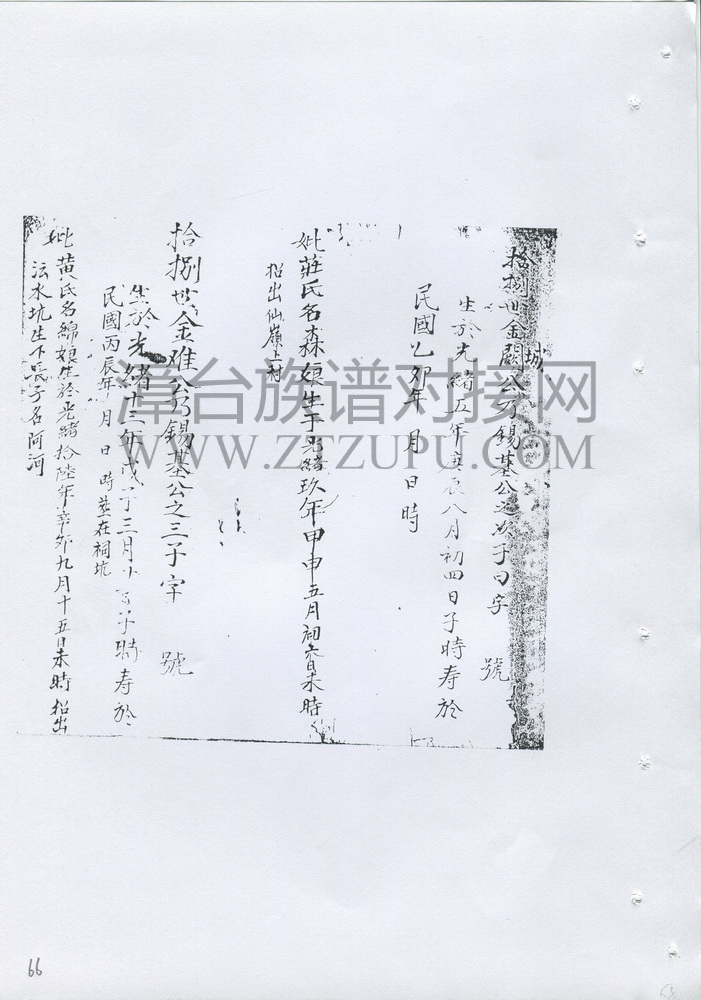 拾捌世金闕公乃錫基公之次子曰字 號
城
生於光緒五年庚辰八月初四日子時寿於
民國乙卯年 月 日 時
妣莊氏名森娘生于光緒玖年甲申五月初叁日未時
招出仙嶺上村
拾捌世金难公乃錫基公之三子字 號
生於光緒十三年戊子三月 子時寿於
民國丙辰年 月 日 時塟在祠坑
妣黄氏名綿娘生於光緒拾陸年辛卯九月十五日未時招出
水坑生下長子名阿河
漳台族谱对接网
WWW.ZTZUPU.COM
66